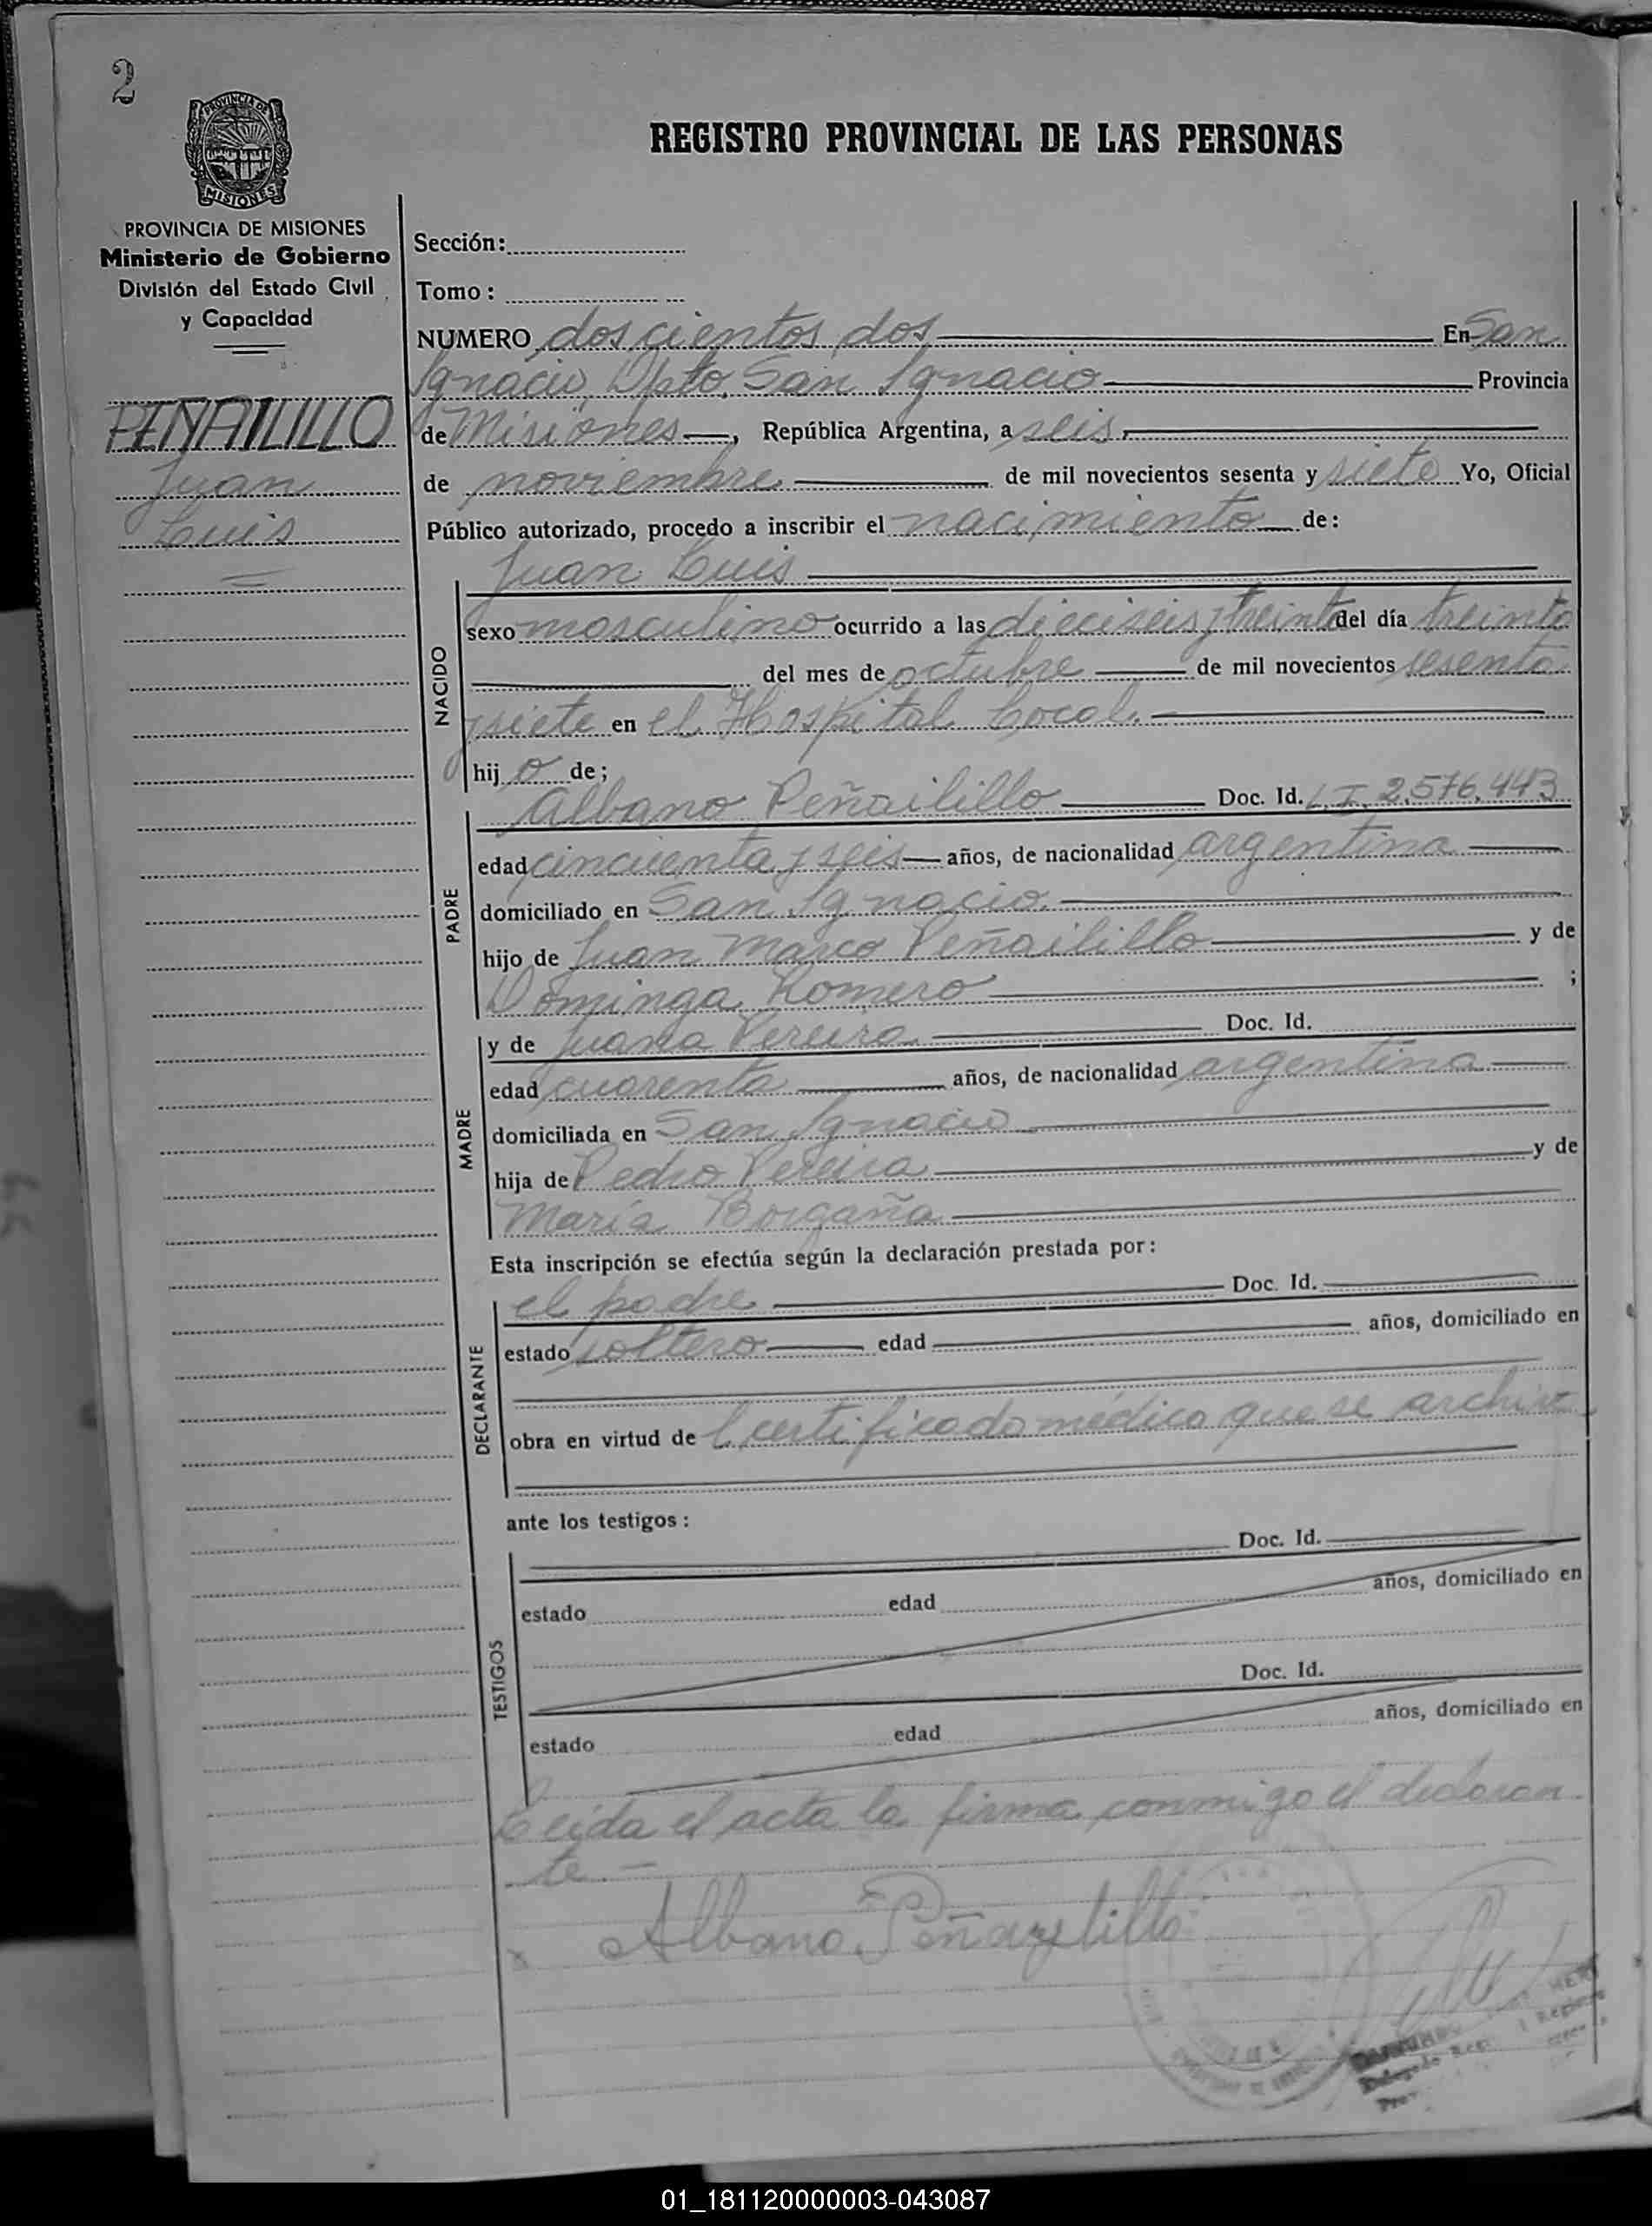 2
PROVINCIA DE
MISIONES
REGISTRO PROVINCIAL DE LAS PERSONAS
PROVINCIA DE MISIONES
Ministerio de Gobierno
División del Estado Civil
y Capacidad
PEÑAILILLO
Juan
Luis
Sección:
Tomo:
NUMERO doscientos dos En San
Ignacio, Dpto. San Ignacio Provincia
de Misiones, República Argentina, a seis
de noviembre de mil novecientos sesenta y siete Yo, Oficial
Público autorizado, procedo a inscribir el nacimiento de:
Juan Luis
NACIDO
sexo masculino ocurrido a las dieciseis y treinta del día treinta
del mes de octubre de mil novecientos sesenta
y siete en el Hospital Local.
hijo de;
Albano Peñailillo Doc. Id. L.I. 2.576.443
PADRE
edad cincuenta y seis años, de nacionalidad argentina
domiciliado en San Ignacio
hijo de Juan Marco Peñailillo y de
Dominga Romero ;
y de Juana Pereira Doc. Id.
MADRE
edad cuarenta años, de nacionalidad argentina
domiciliada en San Ignacio
hija de Pedro Pereira y de
María Borgaña
Esta inscripción se efectúa según la declaración prestada por:
el padre Doc. Id.
DECLARANTE
estado soltero edad años, domiciliado en
obra en virtud de l certificado médico que se archiva
ante los testigos:
Doc. Id.
TESTIGOS
estado edad años, domiciliado en
Doc. Id.
estado edad años, domiciliado en
Leida el acta la firma conmigo el declaran
te.-
x Albano Peñaylillo
01_181120000003-043087